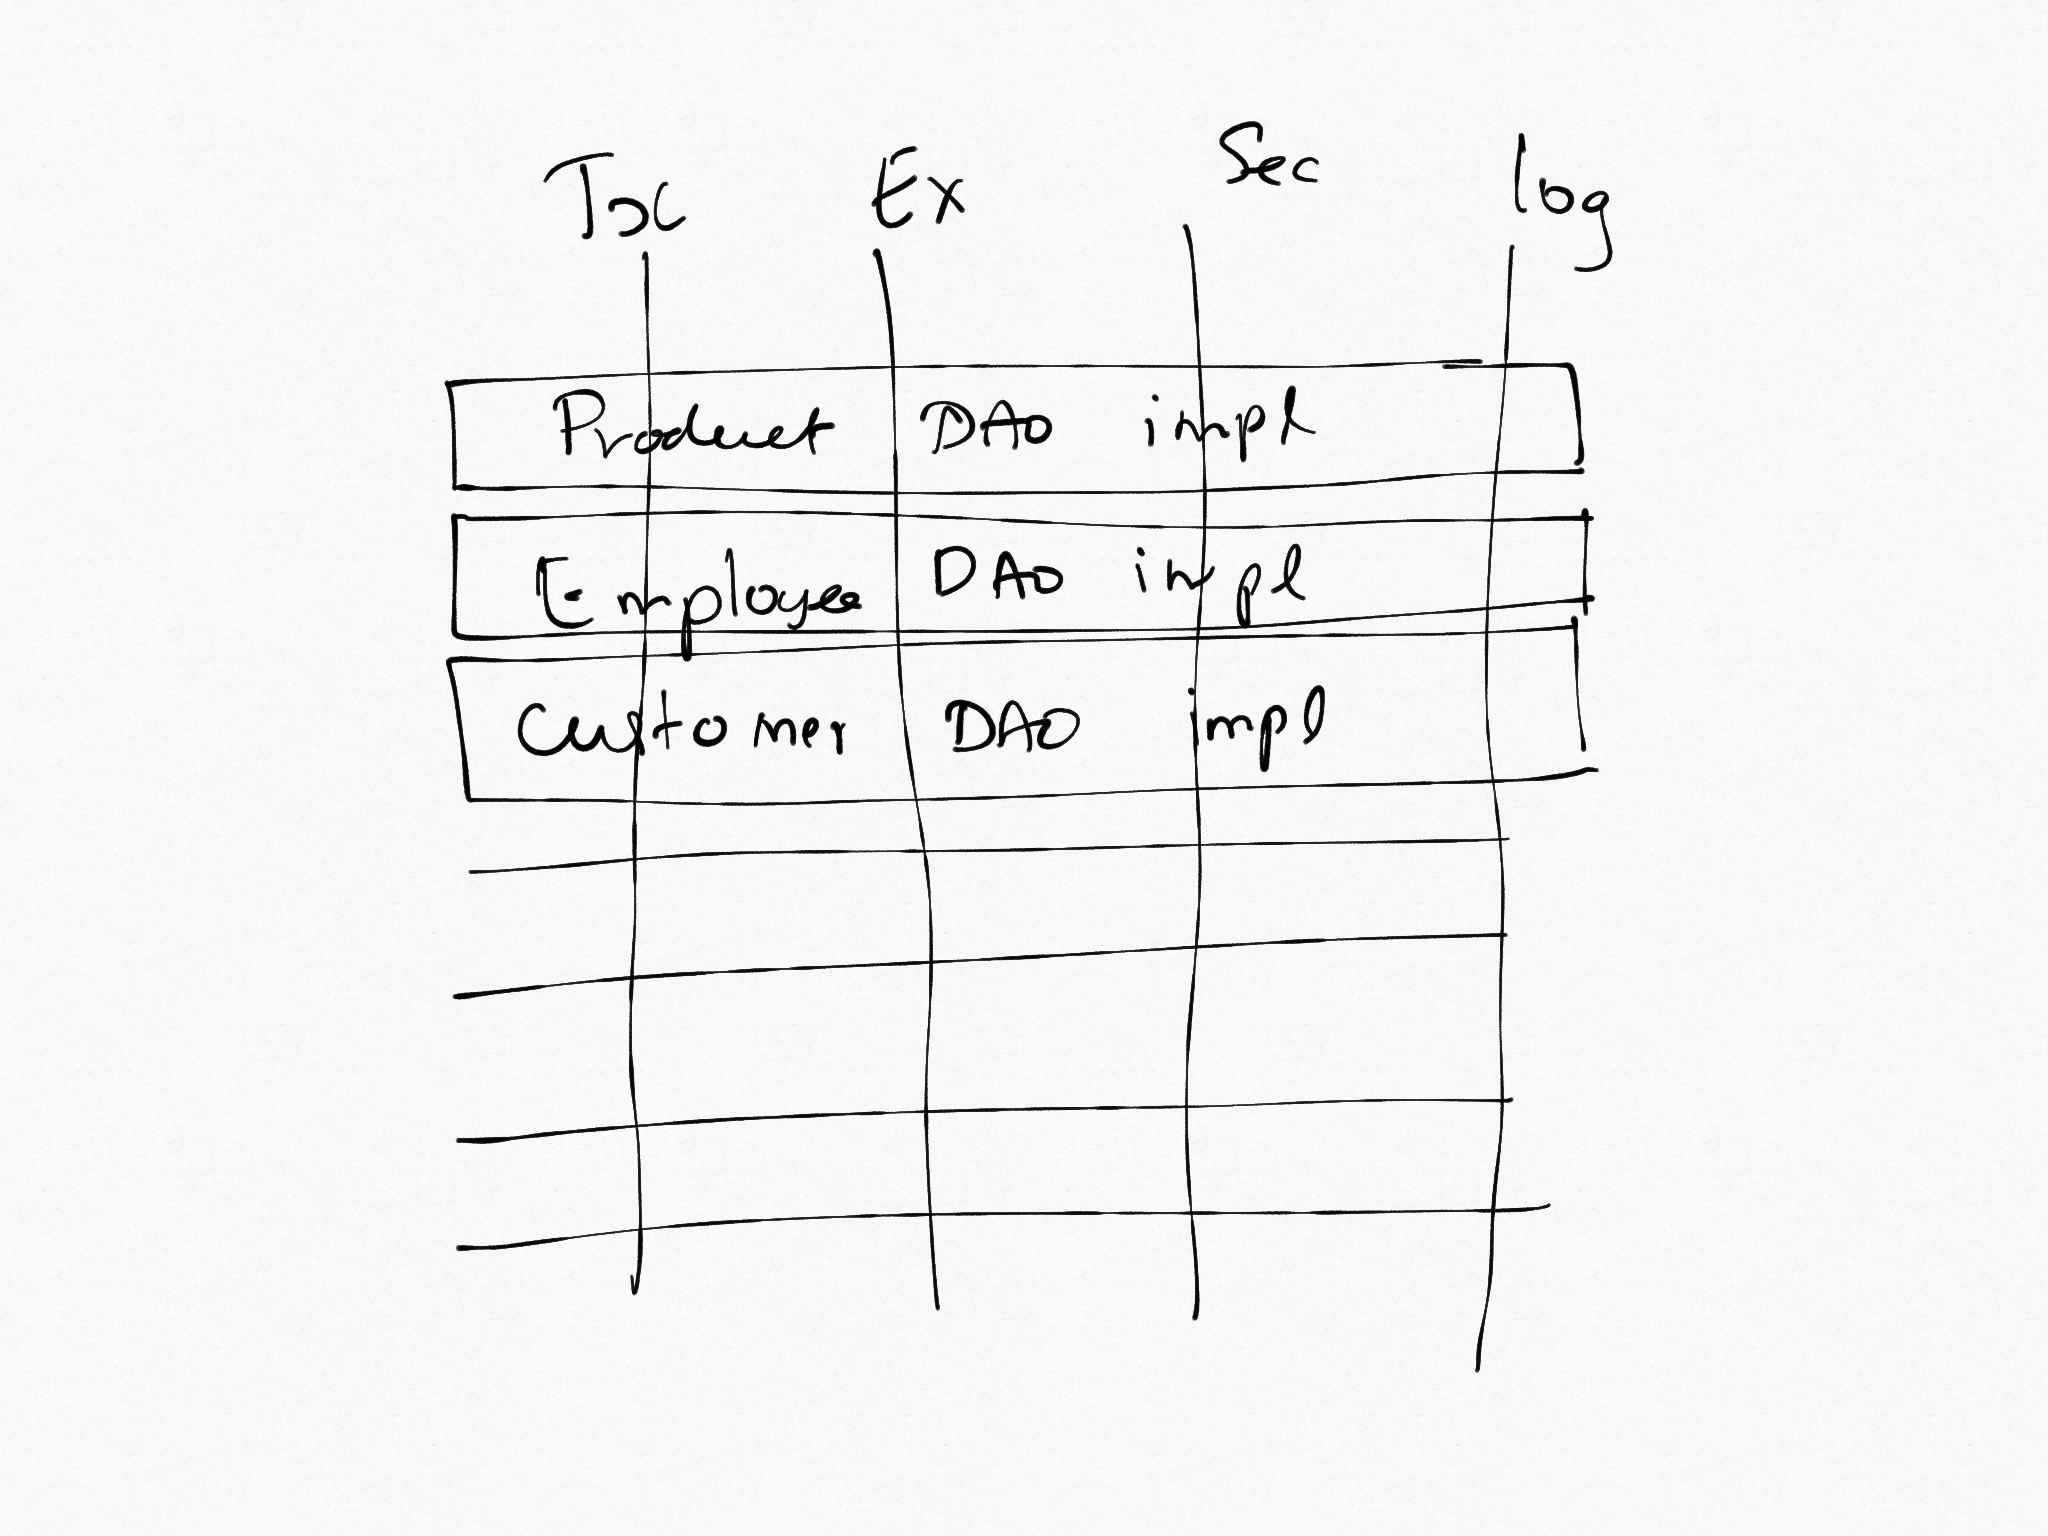 Tx Ex Sec log
Product DAO impl
Employee DAO impl
Customer DAO impl